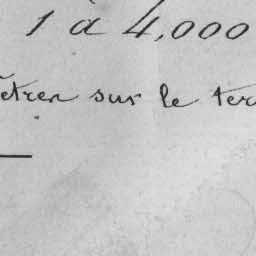 1 à 4,000
etrer sur le ter